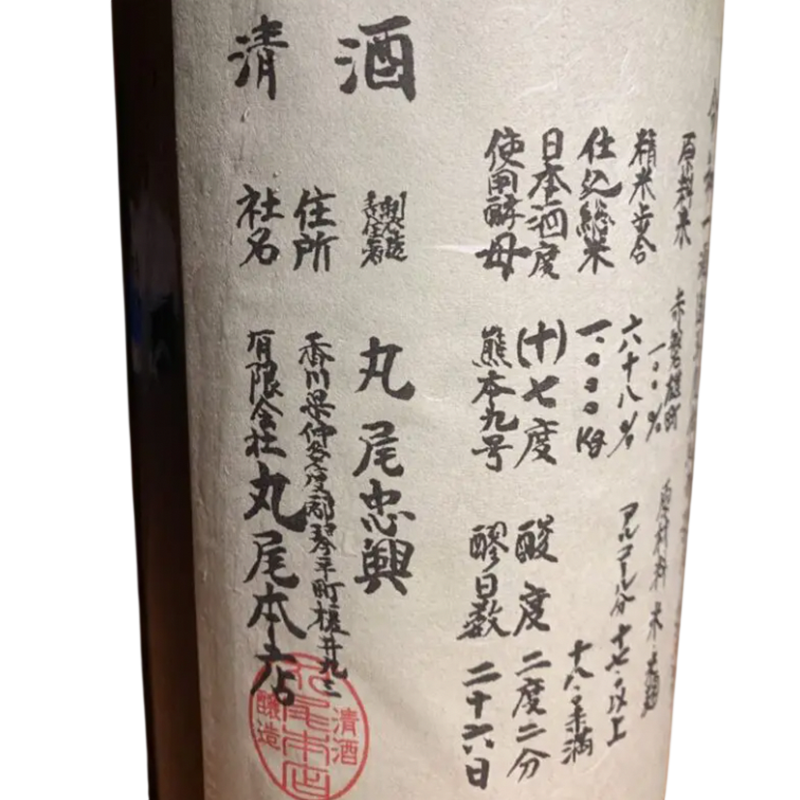 原料米 赤磐雄町 一〇〇% 原材料 米・米麹
精米歩合 六十八% アルコール分 十七・以上
十八・未満
仕込総米 一、〇〇〇Kg
日本酒度 (十)七度 酸度 二度二分
使用酵母 熊本九号 醪日数 二十六日
清酒
製造責任者 丸尾忠興
住所 香川県仲多度郡琴平町榎井九三
社名 有限会社丸尾本店
清酒
丸尾本店
醸造